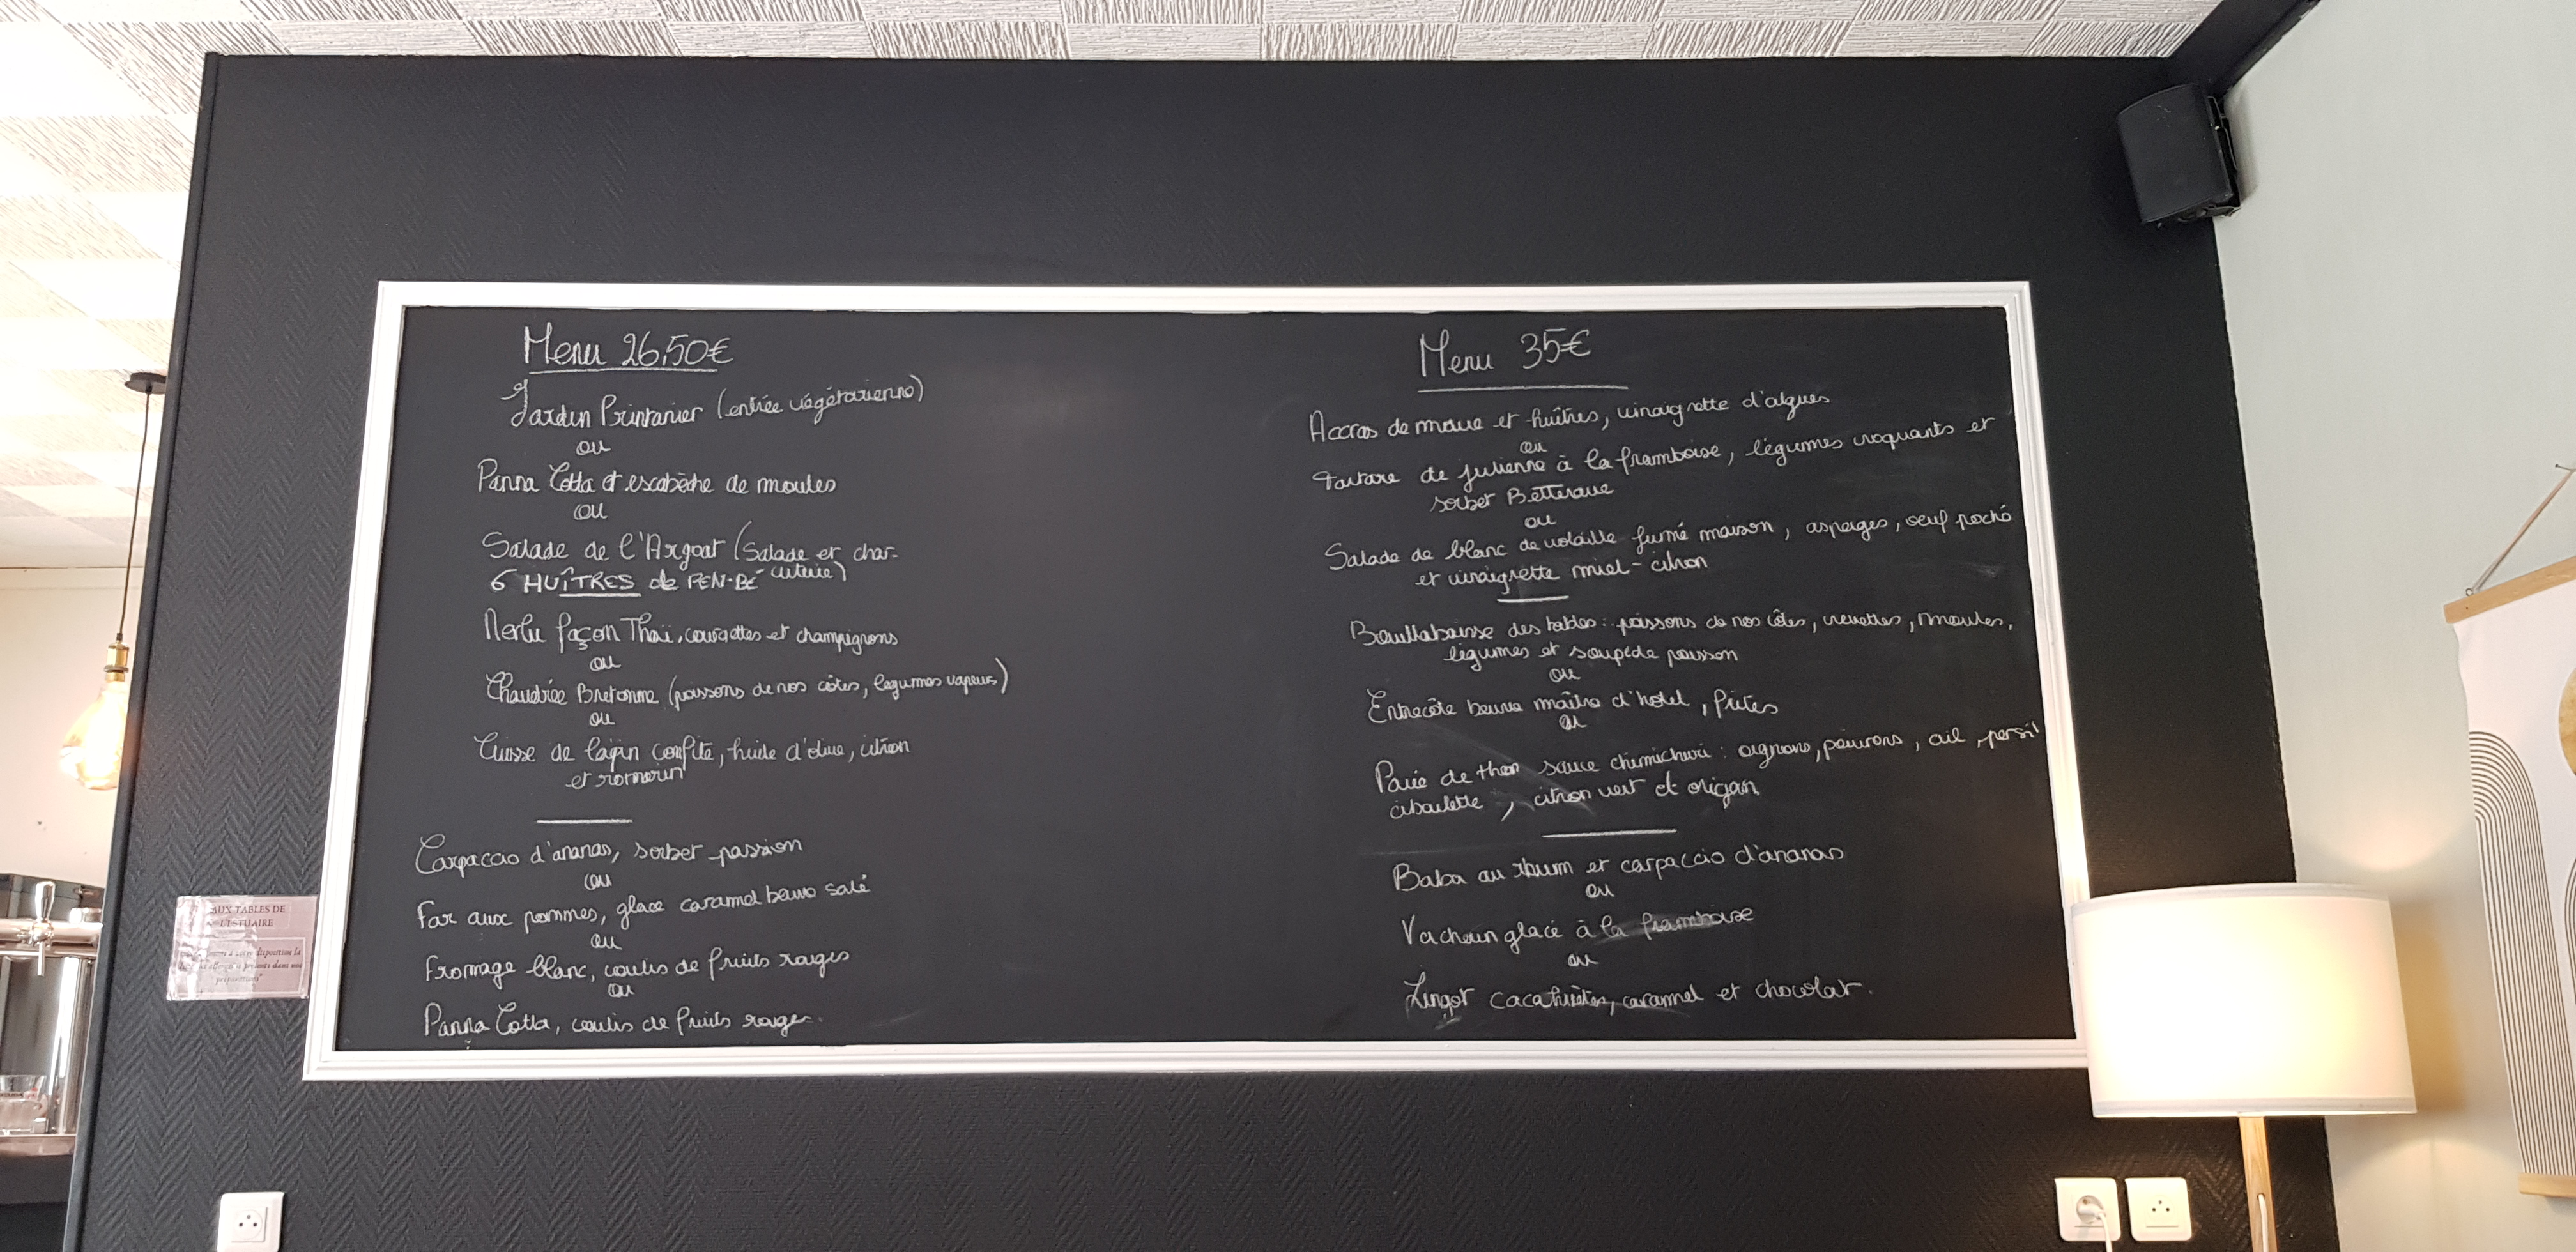 Menu 26,50€
Jardin Printanier (entrée végétarienne)
ou
Panna Cotta et escabèche de moules
ou
Salade de l'Argoat (Salade et char-
cuterie)
6 HUÎTRES de PEN-BÉ
Merlu façon Thaï, courgettes et champignons
ou
Chaudrée Bretonne (poissons de nos côtes, légumes vapeurs)
ou
Cuisse de lapin confite, huile d'olive, citron
et romarin
Carpaccio d'ananas, sorbet passion
ou
Far aux pommes, glace caramel beurre salé
ou
Fromage blanc, coulis de fruits rouges
ou
Panna Cotta, coulis de fruits rouges.
Menu 35€
Accras de morue et huîtres, vinaigrette d'algues
ou
Tartare de julienne à la framboise, légumes croquants et
sorbet Betterave
ou
Salade de blanc de volaille fumé maison, asperges, oeuf poché
et vinaigrette miel-citron
Bouillabaisse des tables : poissons de nos côtes, crevettes, moules,
légumes et soupe de poisson
ou
Entrecôte beurre maître d'hotel, frites
ou
Pavé de thon sauce chimichuri : oignons, poivrons, ail, persil
ciboulette, citron vert et origan
Baba au rhum et carpaccio d'ananas
ou
Vacherin glacé à la framboise
ou
Lingot cacahuètes, caramel et chocolat.
AUX TABLES DE
L'ESTUAIRE
disposition la